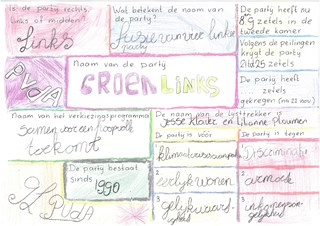 Is de party rechts,
links of midden?
Links
Wat betekent de naam van
de party?
fusie van vier linkse
party
De party heeft nu
8 9 zetels in de
tweede kamer
Volgens de peilingen
krijgt de party
zetels
De party heeft
zetels
gekregen (na 22 nov.)
PvdA
Naam van de party
GROEN LINKS
Naam van het verkiezingsprogramma
Samen voor een
toekomt
De naam van de lijsttrekker is
Jesse Klaver en Lilianne Ploumen
De party is vóór
1 klimaat
2 eerlijk wonen
3 gelijkwaar
De party is tegen
1 Discriminatie
2 armoede
3
De party bestaat
sinds
1990
GL PvdA